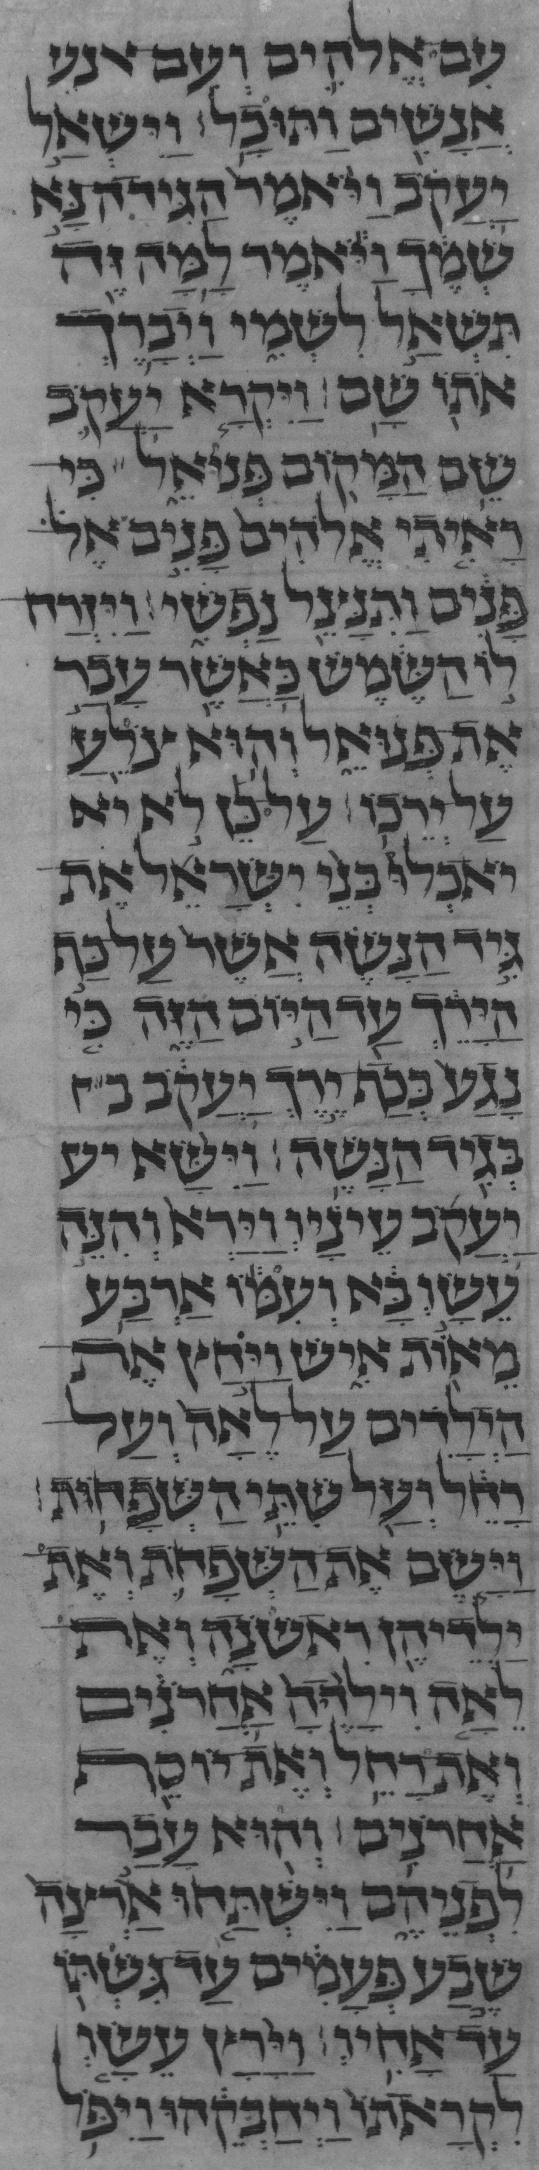 עִם אֱלֹהִים וְעִם אנש
אֲנָשִׁים וַתּוּכָל׃ וַיִּשְׁאַל
יַעֲקֹב וַיֹּאמֶר הַגִּידָה נָּא
שְׁמֶךָ וַיֹּאמֶר לָמָּה זֶּה
תִּשְׁאַל לִשְׁמִי וַיְבָרֶךְ
אֹתוֹ שָׁם׃ וַיִּקְרָא יַעֲקֹב
שֵׁם הַמָּקוֹם פְּנִיאֵל כִּי
רָאִיתִי אֱלֹהִים פָּנִים אֶל
פָּנִים וַתִּנָּצֵל נַפְשִׁי׃ וַיִּזְרַח
לוֹ הַשֶּׁמֶשׁ כַּאֲשֶׁר עָבַר
אֶת פְּנוּאֵל וְהוּא צֹלֵעַ
עַל יְרֵכוֹ׃ עַל כֵּן לֹא יא
יֹאכְלוּ בְנֵי יִשְׂרָאֵל אֶת
גִּיד הַנָּשֶׁה אֲשֶׁר עַל כַּף
הַיָּרֵךְ עַד הַיּוֹם הַזֶּה כִּי
נָגַע בְּכַף יֶרֶךְ יַעֲקֹב
בְּגִיד הַנָּשֶׁה׃ וַיִּשָּׂא יע
יַעֲקֹב עֵינָיו וַיַּרְא וְהִנֵּה
עֵשָׂו בָּא וְעִמּוֹ אַרְבַּע
מֵאוֹת אִישׁ וַיַּחַץ אֶת
הַיְלָדִים עַל לֵאָה וְעַל
רָחֵל וְעַל שְׁתֵּי הַשְּׁפָחוֹת׃
וַיָּשֶׂם אֶת הַשְּׁפָחֹת וְאֶת
יַלְדֵיהֶן רִאשֹׁנָה וְאֶת
לֵאָה וִילָדֶיהָ אַחֲרֹנִים
וְאֶת רָחֵל וְאֶת יוֹסֵף
אַחֲרֹנִים׃ וְהוּא עָבַר
לִפְנֵיהֶם וַיִּשְׁתַּחוּ אַרְצָה
שֶׁבַע פְּעָמִים עַד גִּשְׁתּוֹ
עַד אָחִיו׃ וַיָּרָץ עֵשָׂו
לִקְרָאתוֹ וַיְחַבְּקֵהוּ וַיִּפֹּל